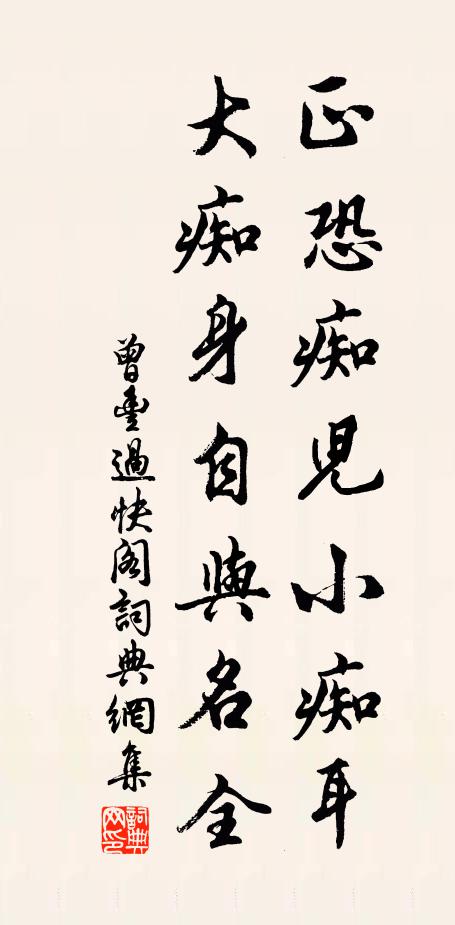 正恐痴児小痴耳
大痴身自與名全
曾豊過快阁詞典網集
詞典網印